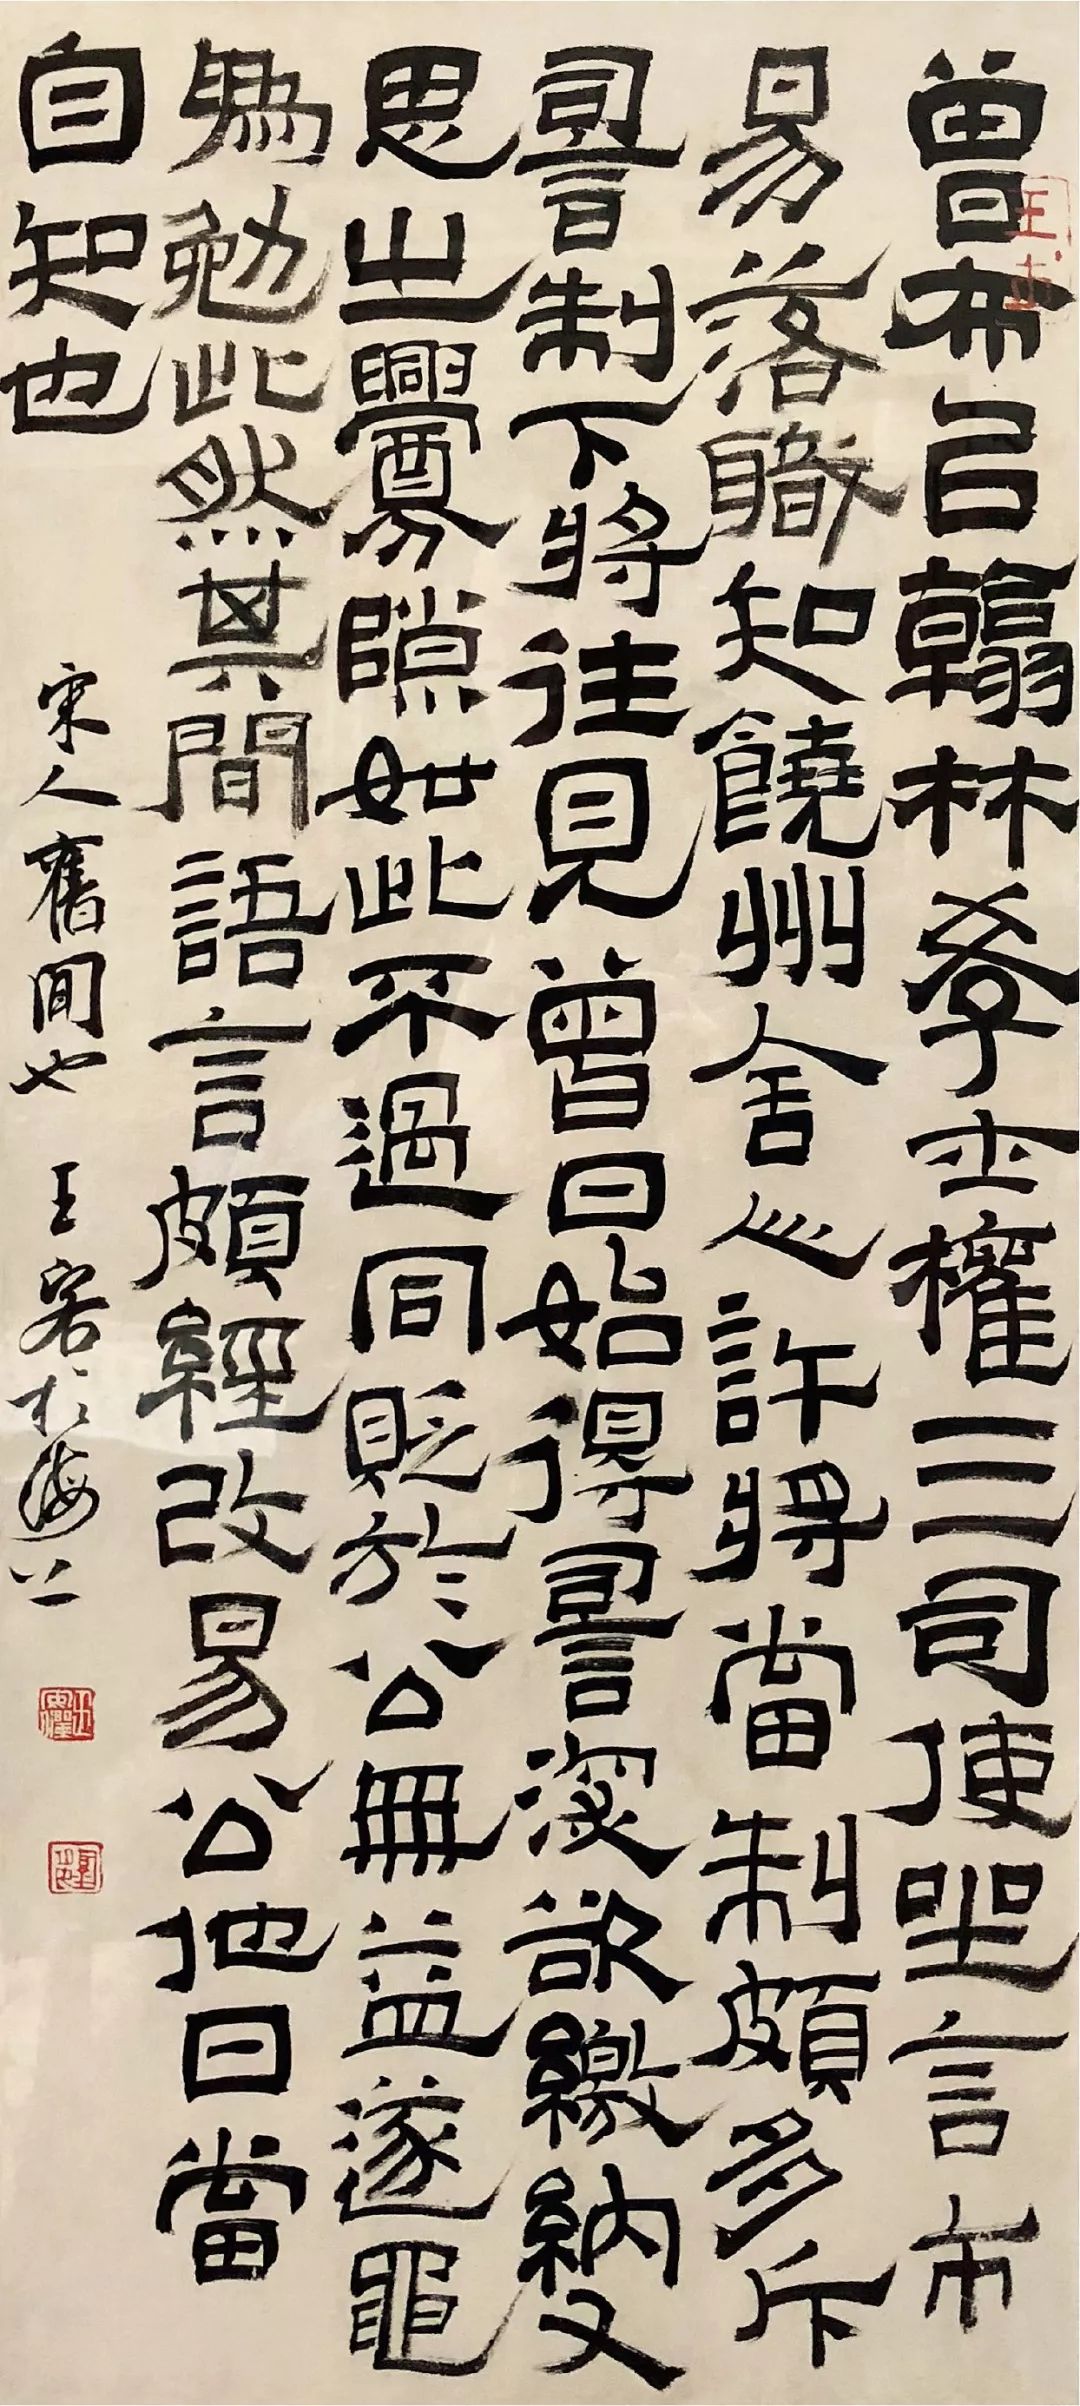 曾布以翰林學士權三司使坐言市
易落職知饒州舍人許將當制頗多斥
詈制下將往見曾曰始得詈深欲繳納又
思之釁隙如此不過同貶於公無益遂黽
為勉此然其間語言頗經改易公他日當
自知也
宋人舊聞也 王客於海上